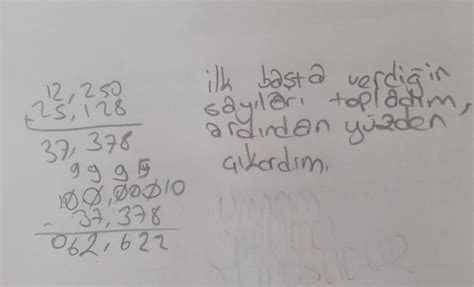 12,250
+ 25,128
37,378
9 9 9 9
100,00010
- 37,378
062,622
ilk başta verdiğin
sayıları topladım,
ardından yüzden
çıkardım.